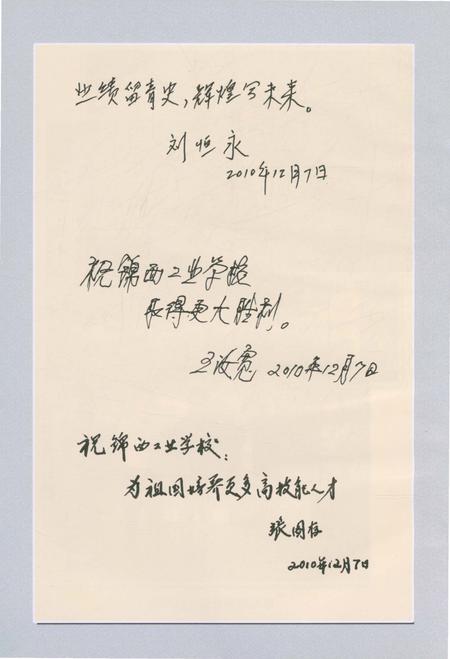 业绩留青史,辉煌写未来。
刘恒永
2010年12月7日
祝锦西工业学校
取得更大胜利。
王汝宽 2010年12月7日
祝锦西工业学校:
为祖国培养更多高技能人才
张国存
2010年12月7日